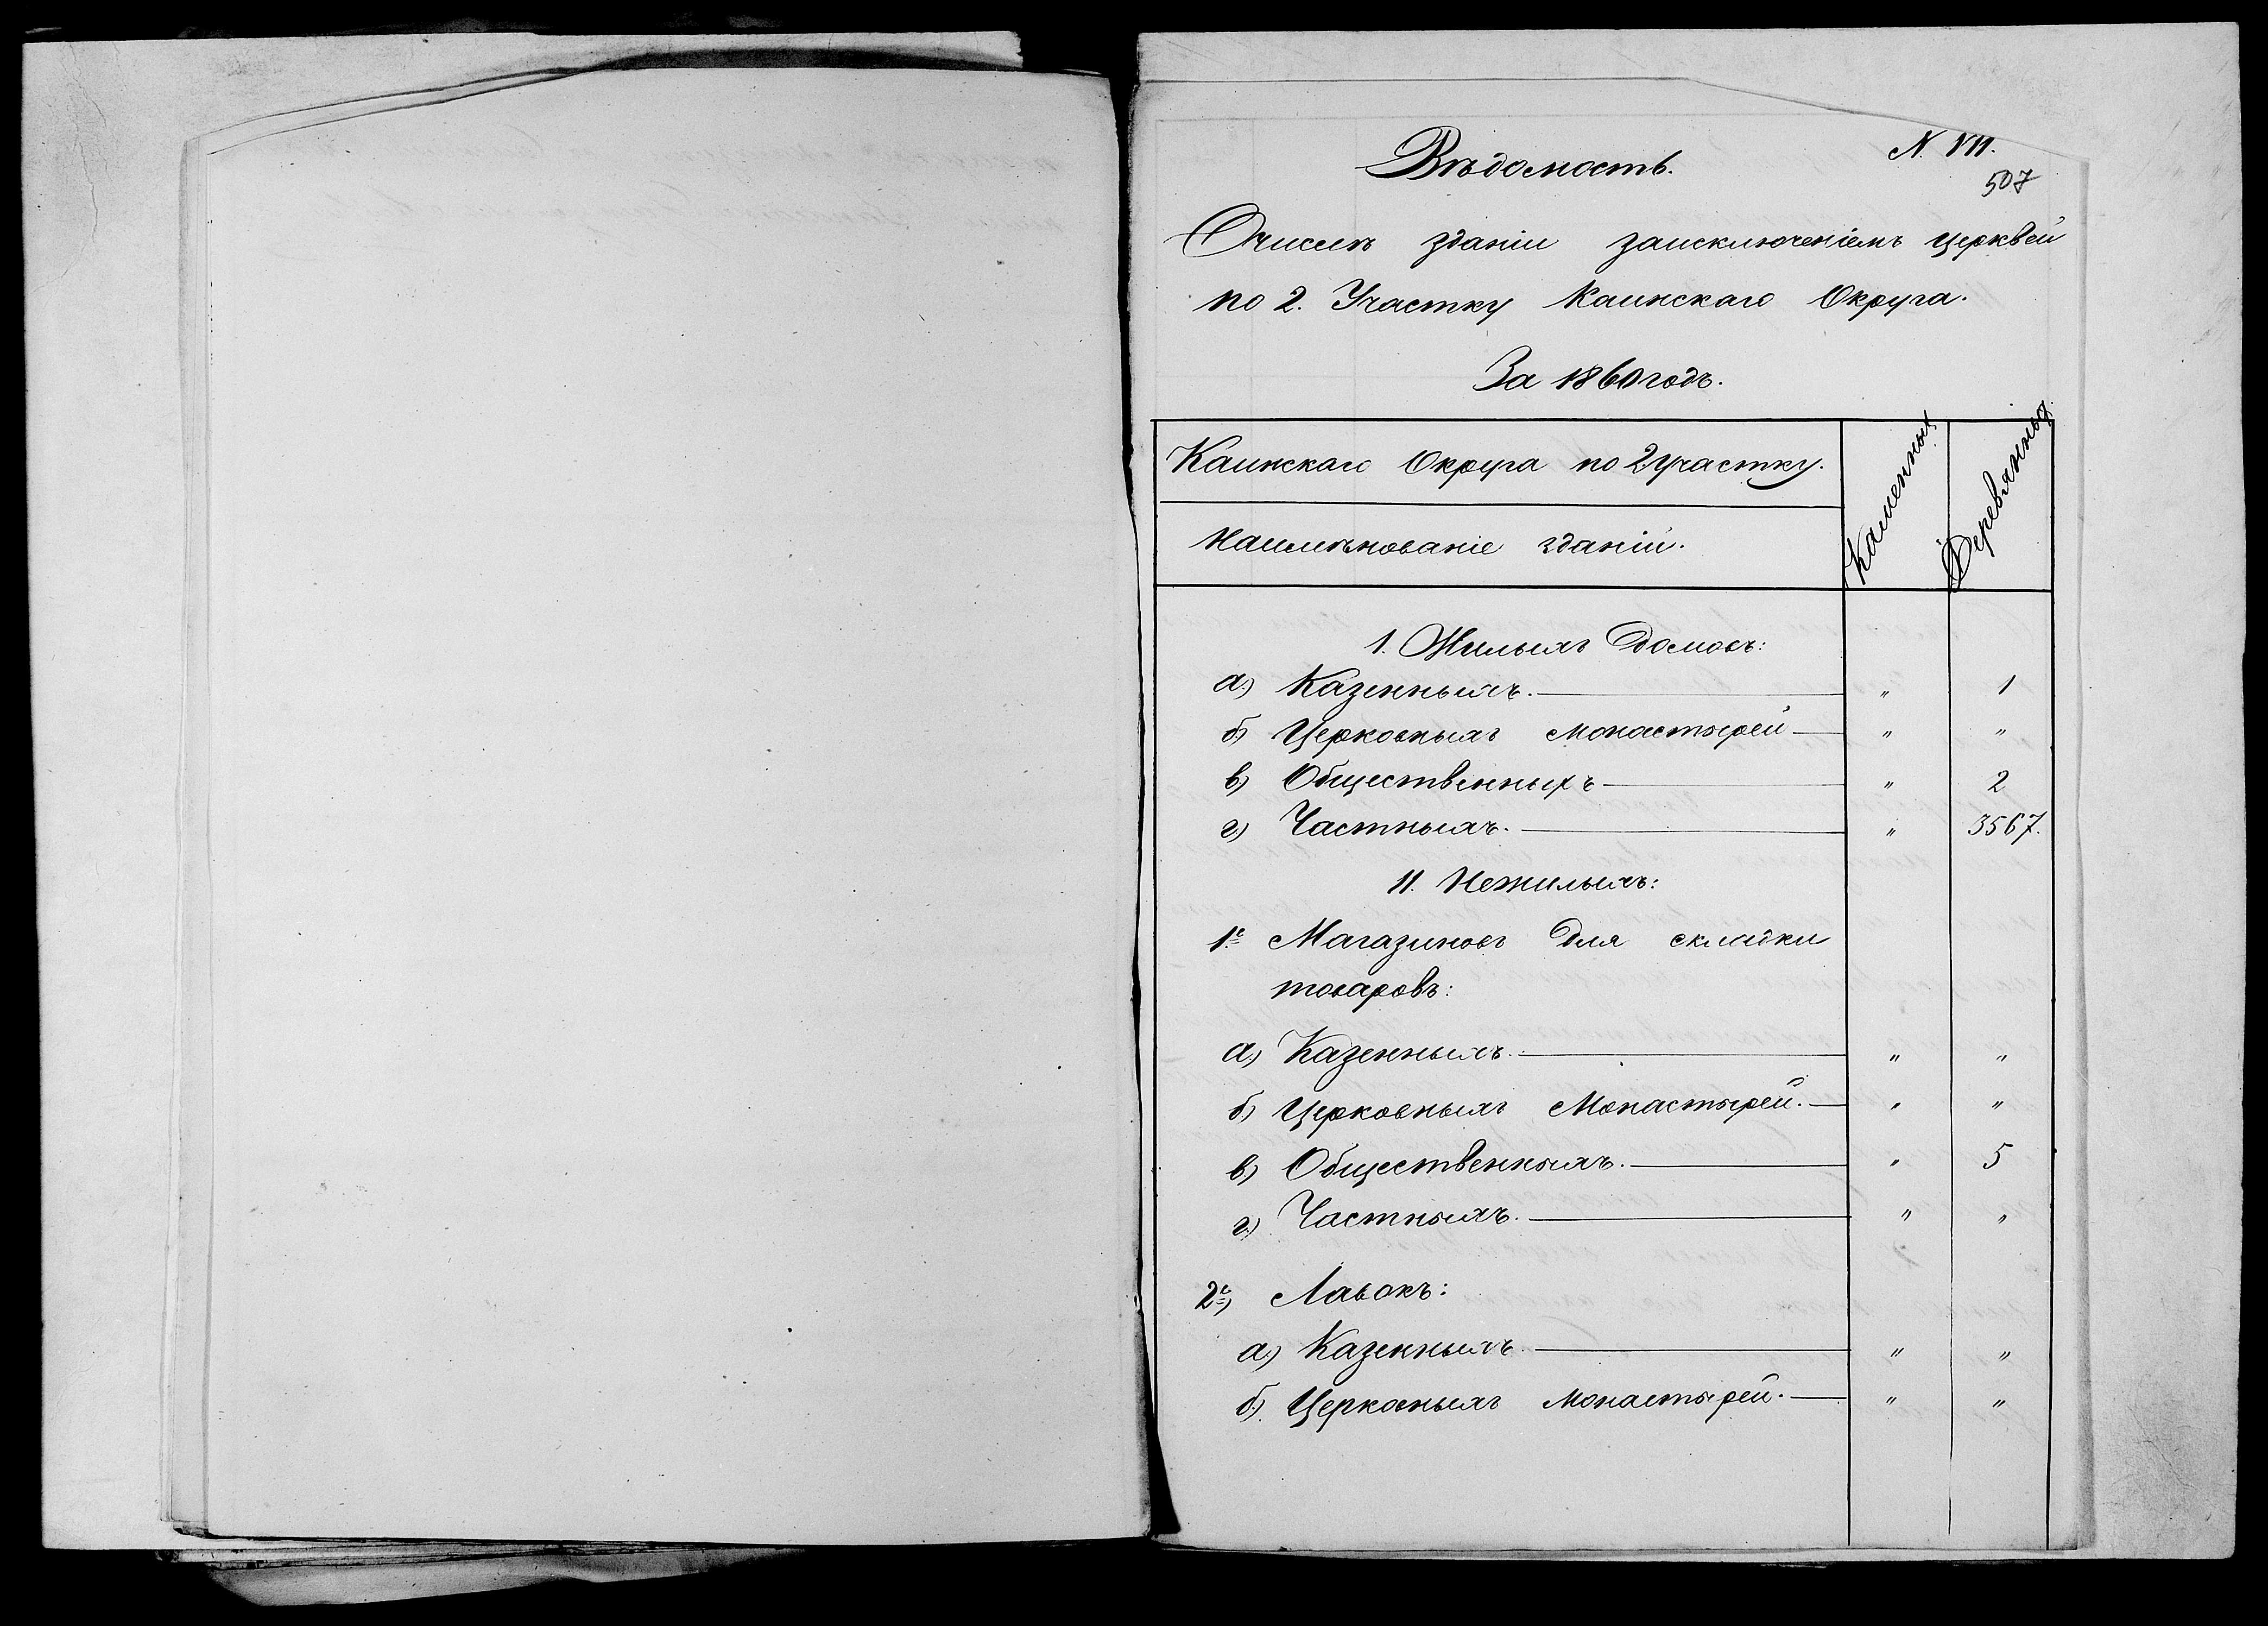 N. VII.
507
Вѣдомость.
Очислѣ зданіи заисключеніемъ церквей
по 2. Участку Каинскаго Округа.
За 1860 годъ.
Каинскаго Округа по 2 участку.
Каменныхъ
Деревянныхъ
Наимѣнованіе зданій.
1. Жилыхъ домовъ:
а.) Казенныхъ. — " 1
б.) Церковныхъ монастырей — " "
в) Общественныхъ — " 2
г.) Частныхъ. — " 3567.
11. Нежилыхъ:
1.е Магазиновъ для складки
товаровъ:
а.) Казенныхъ. — " "
б.) Церковныхъ Монастырей. — " "
в) Общественныхъ. — " 5
г.) Частныхъ. — " "
2.е) Лавокъ:
а.) Казенныхъ. — " "
б.) Церковныхъ монастырей. — " "